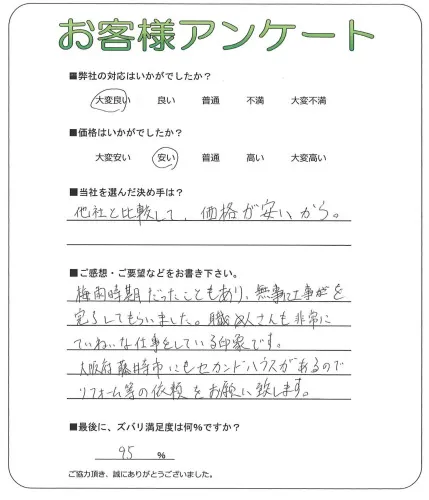 お客様アンケート
■弊社の対応はいかがでしたか?
大変良い 良い 普通 不満 大変不満
■価格はいかがでしたか?
大変安い 安い 普通 高い 大変高い
■当社を選んだ決め手は?
他社と比較して、価格が安いから。
■ご感想・ご要望などをお書き下さい。
梅雨時期だったこともあり、無事工事を
完了してもらいました。職人さんも非常に
ていねいな仕事をしている印象です。
大阪府藤井寺市にもセカンドハウスがあるので
リフォーム等の依頼をお願い致します。
■最後に、ズバリ満足度は何%ですか?
95 %
ご協力頂き、誠にありがとうございました。